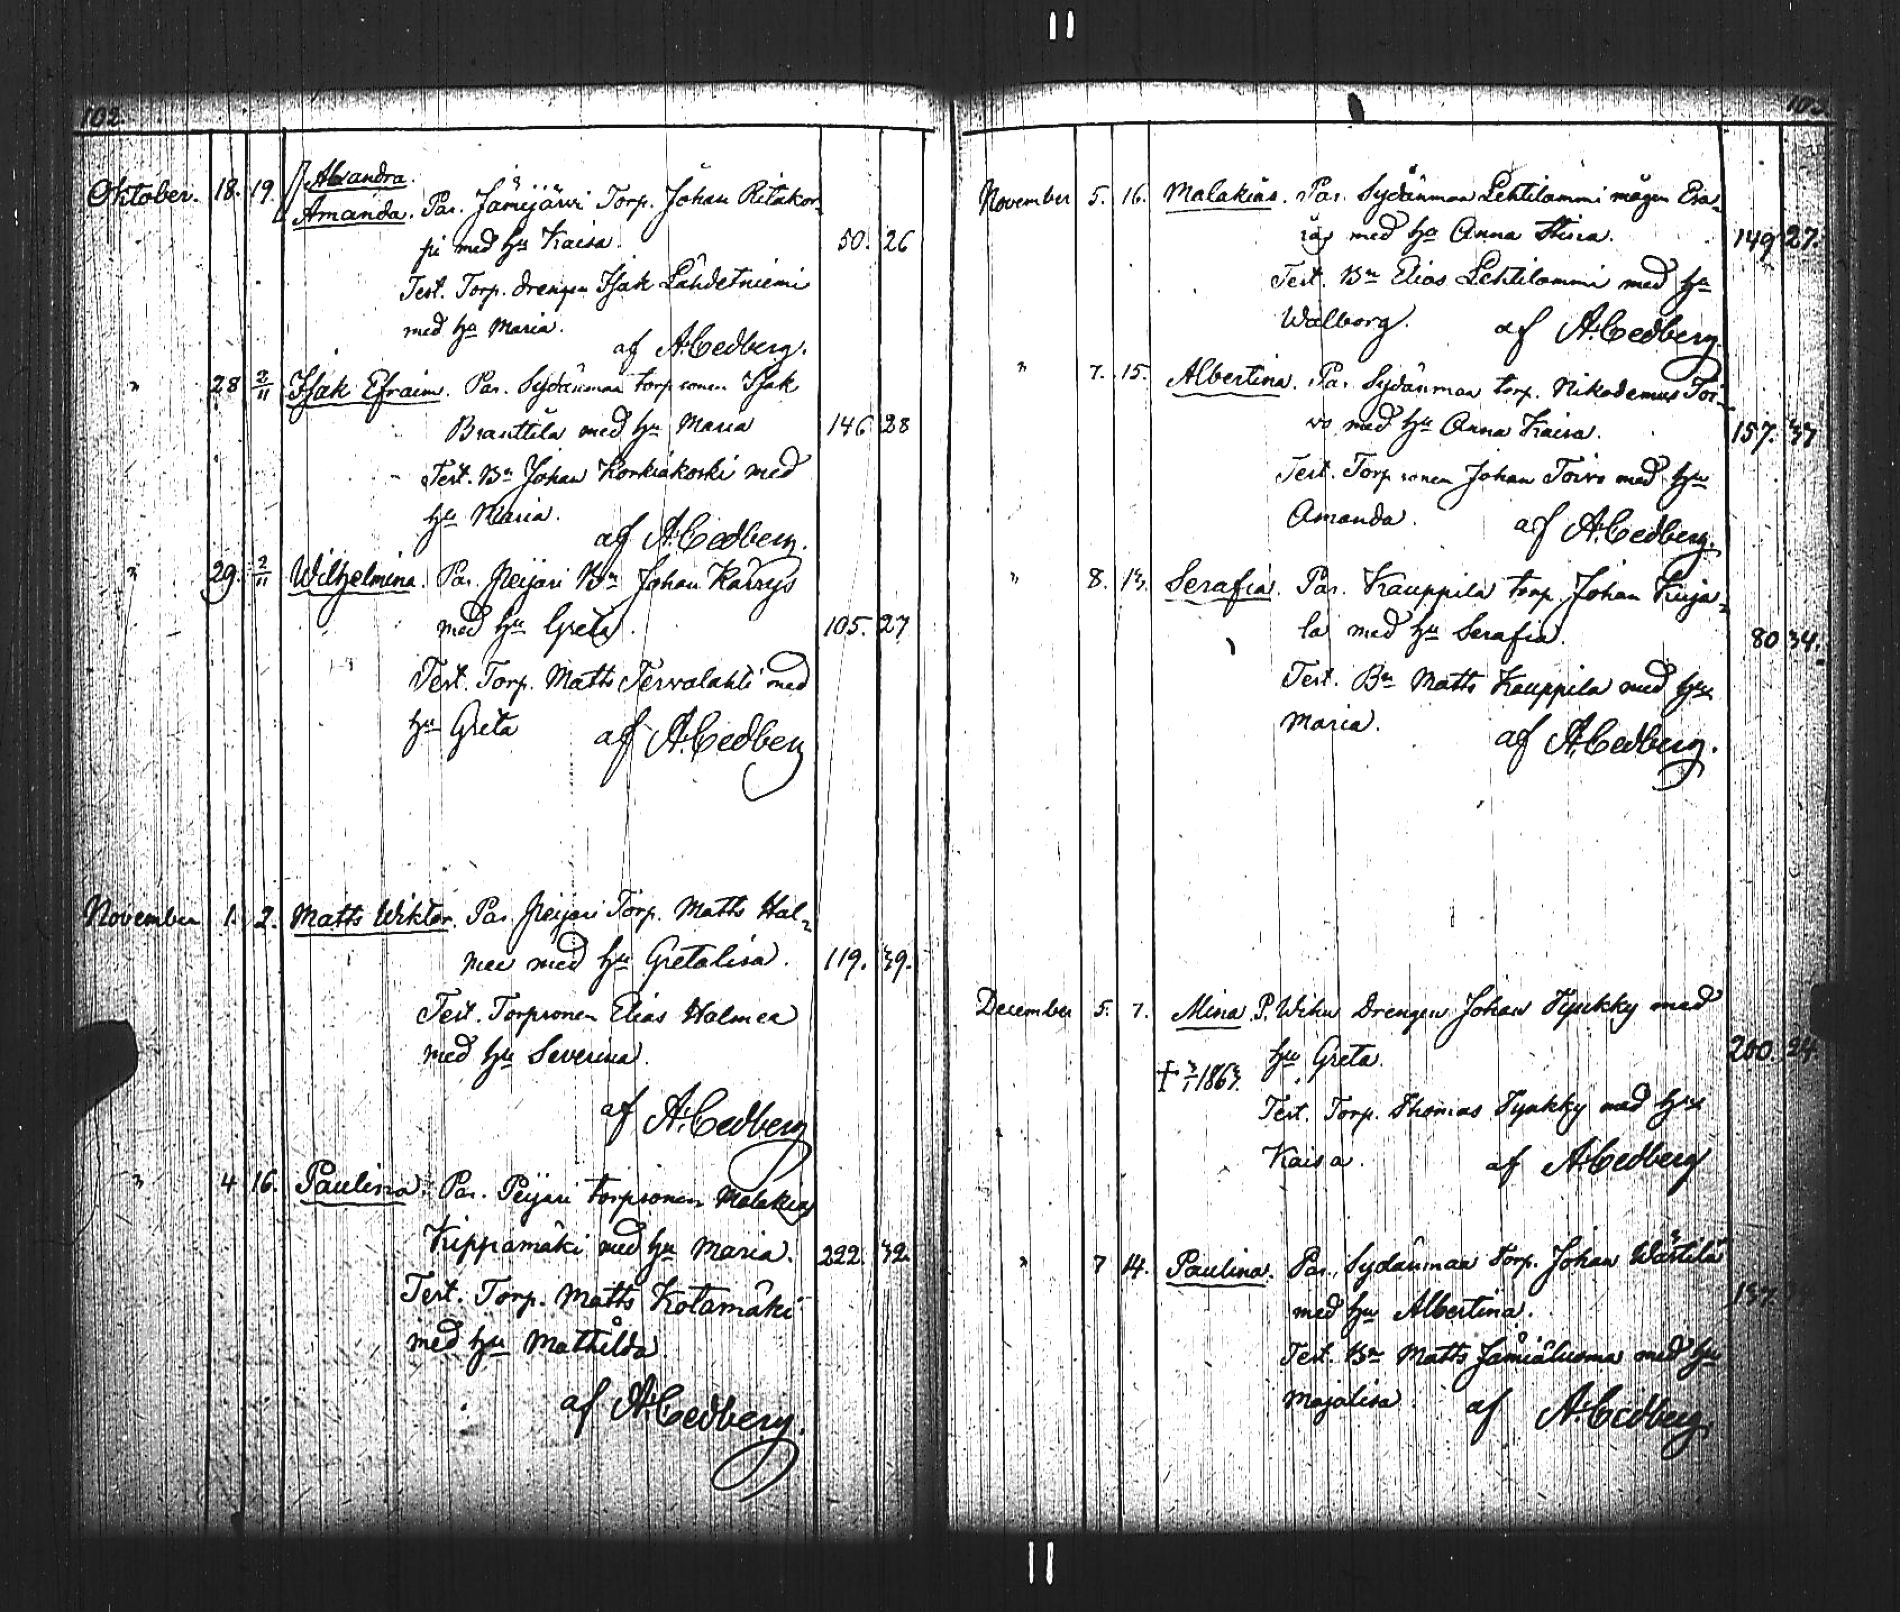 102
Oktober. 18. 19. Alexandra.
Amanda. Par. Jämijärvi Torp. Johan Ritakor-
pi med hu Kaisa. 50. 26
Test. Torp. drengen Isak Lähdetniemi
med ha Maria.
af A. Cedberg.
" 28 2/11 Isak Efraim. Par. Sydänmaa torpsonen Isak
Branttila med hu Maria 146 28
Test. Bn Johan Korkiakoski med
hu Maria.
af A. Cedberg.
" 29. 2/11 Wilhelmina. Par. Peijari Bn Johan Karrys
med hu Greta. 105. 27
Test. Torp. Matts Tervalahti med
hu Greta af A. Cedberg
November 1. 2. Matts Wiktor. Par. Peijari Torp. Matts Hal-
mee med hu Gretalisa. 119. 39.
Test. Torpsonen Elias Halmea
med hu Severina.
af A. Cedberg
" 4 16. Paulina. Par. Peijari torpsonen Malakias
Kippamäki med hu Maria. 222. 32.
Test. Torp. Matts Kotamäki
med hu Mathilda.
af A. Cedberg.
103
November 5. 16. Malakias. Par. Sydänmaa Lehtilammi mågen Esa-
ias med ha Anna Stina. 149 27.
Test. Bn Elias Lehtilammi med hu
Walborg. af A. Cedberg.
" 7. 15. Albertina. Par. Sydänmaa torp. Nikodemus Toi-
vo med hu Anna Kaisa. 157. 37
Test. Torpsonen Johan Toivo med hu
Amanda. af A. Cedberg.
" 8. 13. Serafia. Par. Kauppila torp. Johan Kuja-
la med hu Serafia. 80 34.
Test. Bn Matts Kauppila med hu
Maria. af A. Cedberg.
December 5. 7. Mina. P. Wihu Drengen Johan Tyykky med
hu Greta. 200. 24.
† 3/1 1863.
Test. Torp. Thomas Tyykky med hu
Kaisa. af A. Cedberg
" 7 14. Paulina. Par. Sydänmaa Torp. Johan Wästilä
med hu Albertina. 157.
Test. Bn Matts Jämiäluoma med hu
Majalisa. af A. Cedberg.